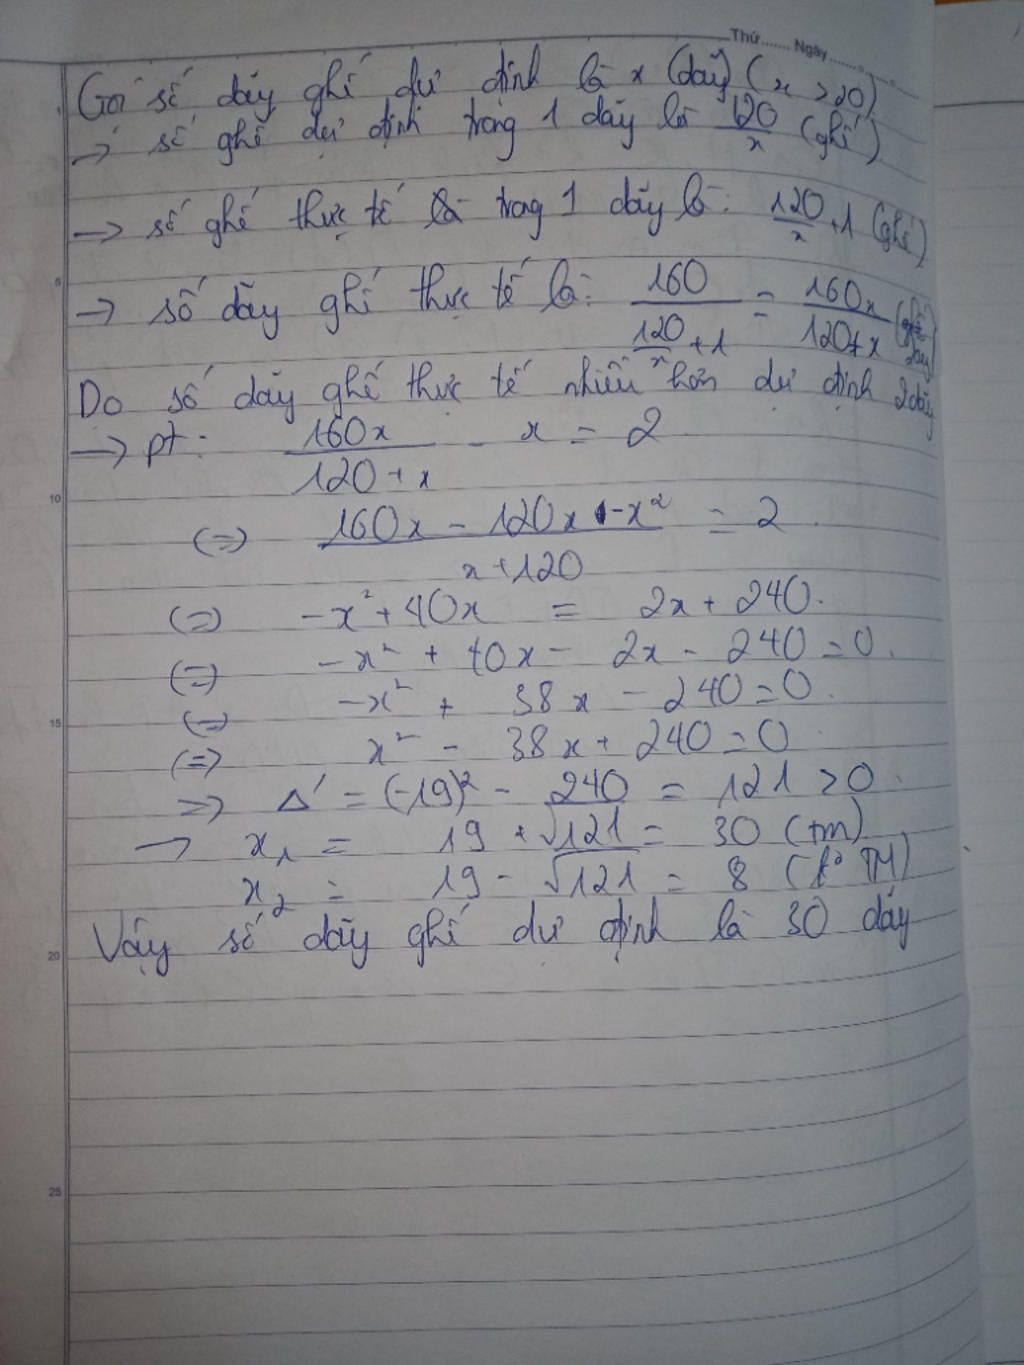 Thứ...... Ngày..........
Gọi số dãy ghế dự định là x (dãy) (x > 20)
→ số ghế dự định trong 1 dãy là 120/x (ghế)
→ số ghế thực tế trong 1 dãy là: 120/x + 1 (ghế)
5
→ số dãy ghế thực tế là: 160/(120/x + 1) = 160x/(120+x) (dãy)
Do số dãy ghế thực tế nhiều hơn dự định 2 dãy
→ pt: 160x/(120+x) - x = 2
10
(=) (160x - 120x - x²)/(x+120) = 2
(=) -x² + 40x = 2x + 240.
(=) -x² + 40x - 2x - 240 = 0.
(=) -x² + 38x - 240 = 0.
15
(=) x² - 38x + 240 = 0
=> Δ' = (-19)² - 240 = 121 > 0.
→ x₁ = 19 + √121 = 30 (tm)
x₂ = 19 - √121 = 8 (k° TM)
Vậy số dãy ghế dự định là 30 dãy
20
25